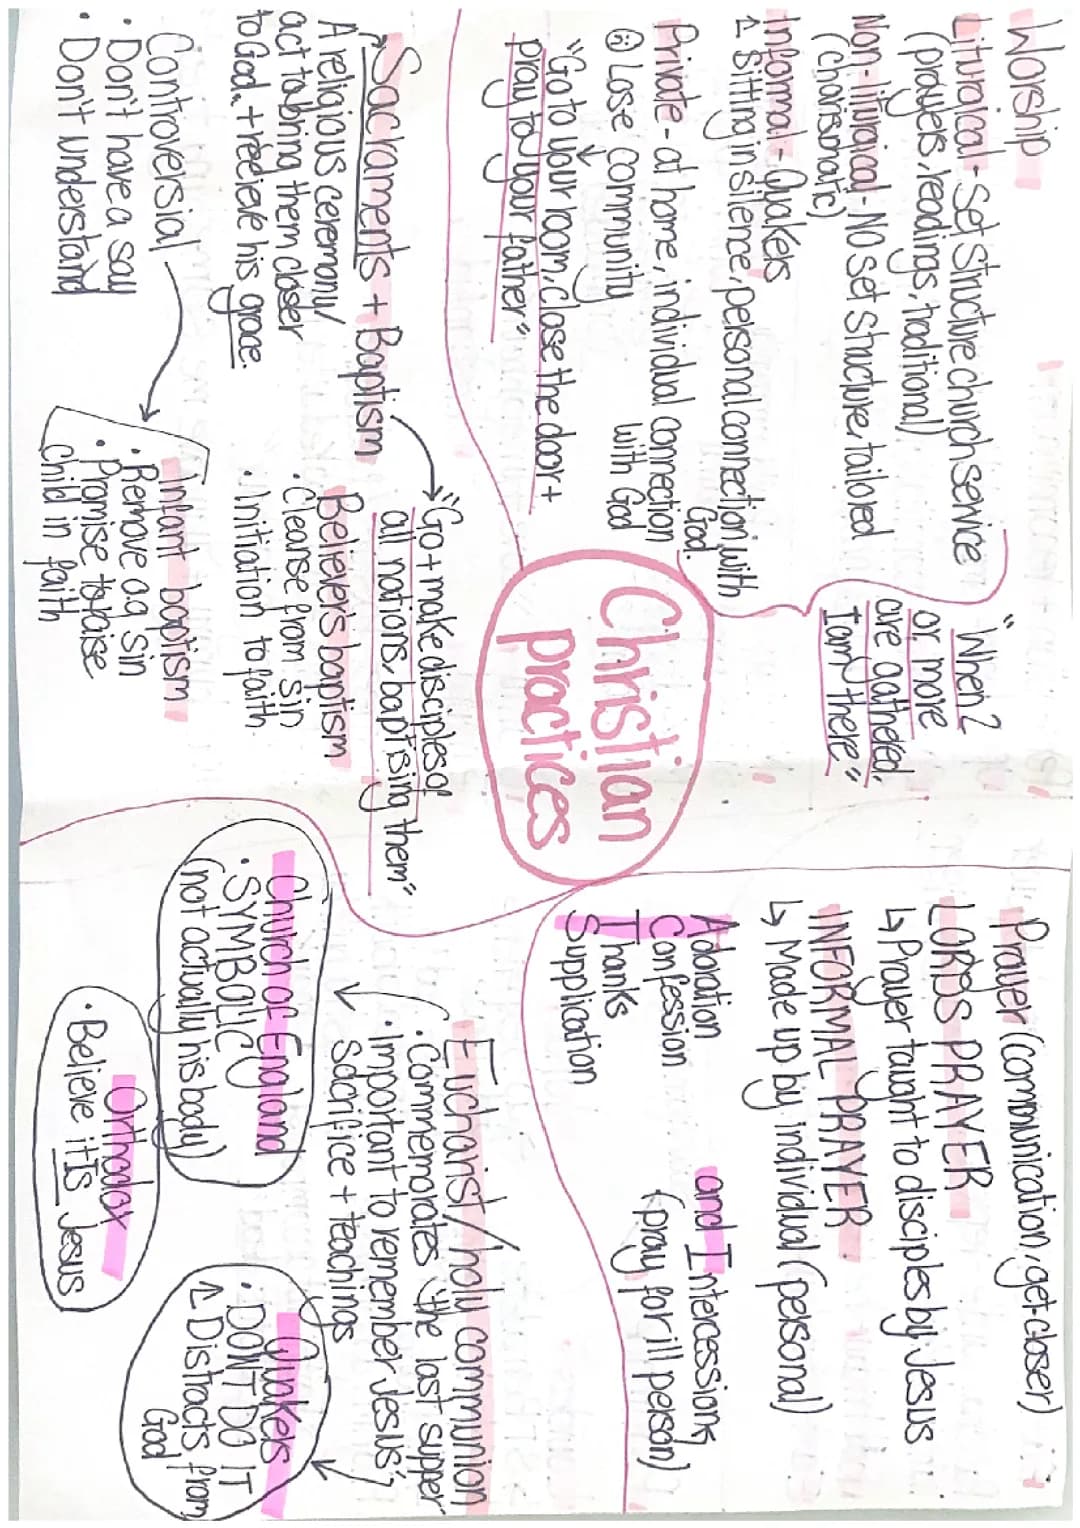 Worship
Liturgical - Set structure church service
(prayers, readings, traditional)
Non-liturgical - No set structure, tailored
(charismatic)
Informal - Quakers
↳ Sitting in silence, personal connection with
God.
Private - at home, individual connection
with God
☹ Lose community
"Go to your room, close the door +
pray to your father"
"When 2
or more
are gathered,
I am there"
Christian
practices
Prayer (communication, get closer)
LORDS PRAYER
↳ Prayer taught to disciples by Jesus
INFORMAL PRAYER
↳ Made up by individual (personal)
Adoration
Confession
Thanks
Supplication
and Intercessions
(pray for ill person)
Sacraments + Baptism
A religious ceremony/
act to bring them closer
to God + recieve his grace.
Controversial
• Don't have a say
• Don't understand
"Go + make disciples of
all nations, baptising them"
Believer's baptism
• Cleanse from sin
• Initiation to faith
Infant baptism
• Remove o.g sin
• Promise to raise
child in faith
Eucharist/holy communion
• Commemorates 'the last supper'
• Important to remember Jesus'
sacrifice + teachings
Church of England
• SYMBOLIC
(not actually his body)
Orthodox
• Believe it IS Jesus
Quakers
• DON'T DO IT
↳ Distracts from
God